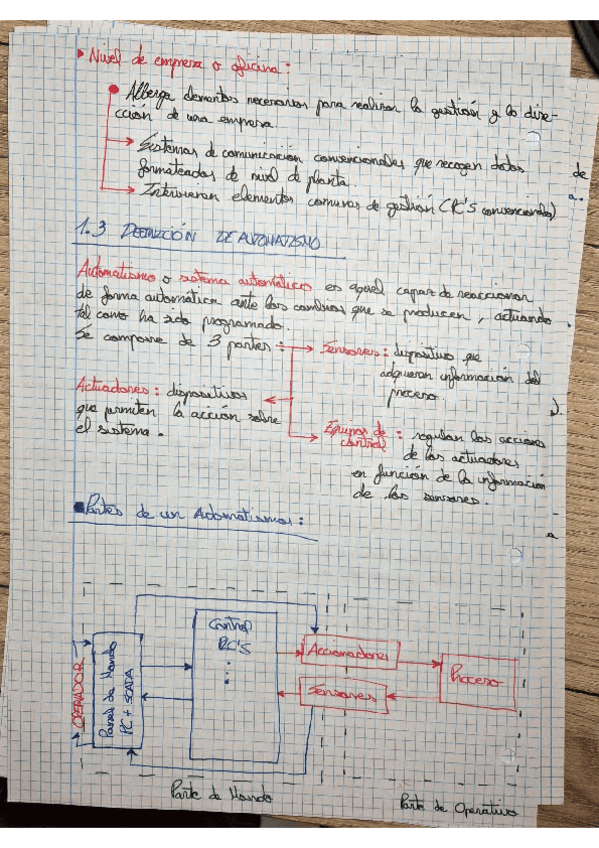 Nivel de empresa o oficina:
Alberga elementos necesarios para realizar la gestión y la dire-
cción de una empresa.
Sistemas de comunicación convencionales que recogen datos
formateados de nivel de planta.
Intervienen elementos comunes de gestión (PC'S convencionales)
de
a.
1.3 DEFINICIÓN DE AUTOMATISMO
Automatismo o sistema automático es aquel capaz de reaccionar
de forma automática ante los cambios que se producen, actuando
tal como ha sido programado.
Se compone de 3 partes:
Sensores: dispositivo que
adquieren información del
proceso.
Actuadores: dispositivos
que permiten la acción sobre
el sistema.
Equipos de control: regulan las acciones
de los actuadores
en función de la información
de los sensores.
a
Partes de un Automatismos:
OPERADOR
Panel de Mando
PC + SCADA
Control
PC'S
Accionadores
Sensores
Proceso
Parte de Mando
Parte de Operativo